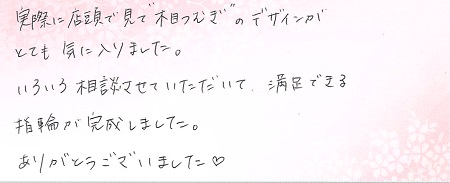 実際に店頭で見て"相つむぎ"のデザインが
とても気に入りました。
いろいろ相談させていただいて、満足できる
指輪が完成しました。
ありがとうございました♡